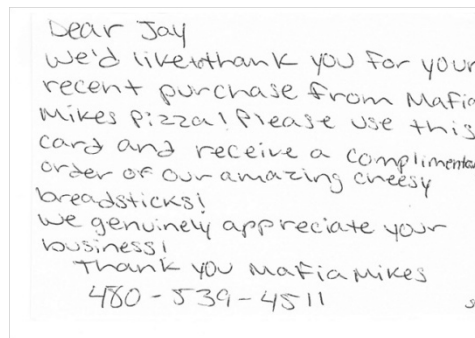 Dear Jay
We'd like to thank you for your
recent purchase from Mafia
Mikes Pizza! Please use this
card and receive a complimenta
order of our amazing cheesy
breadsticks!
We genuinely appreciate your
business!
Thank you Mafia Mikes
480-539-4511